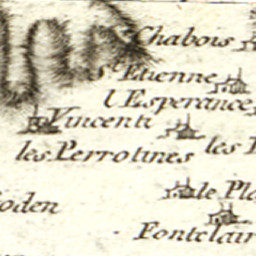 Chabous
S.t Etienne
l'Esperance
Vincenti
les Perrotines
les
le Pla
oden
Fontclair